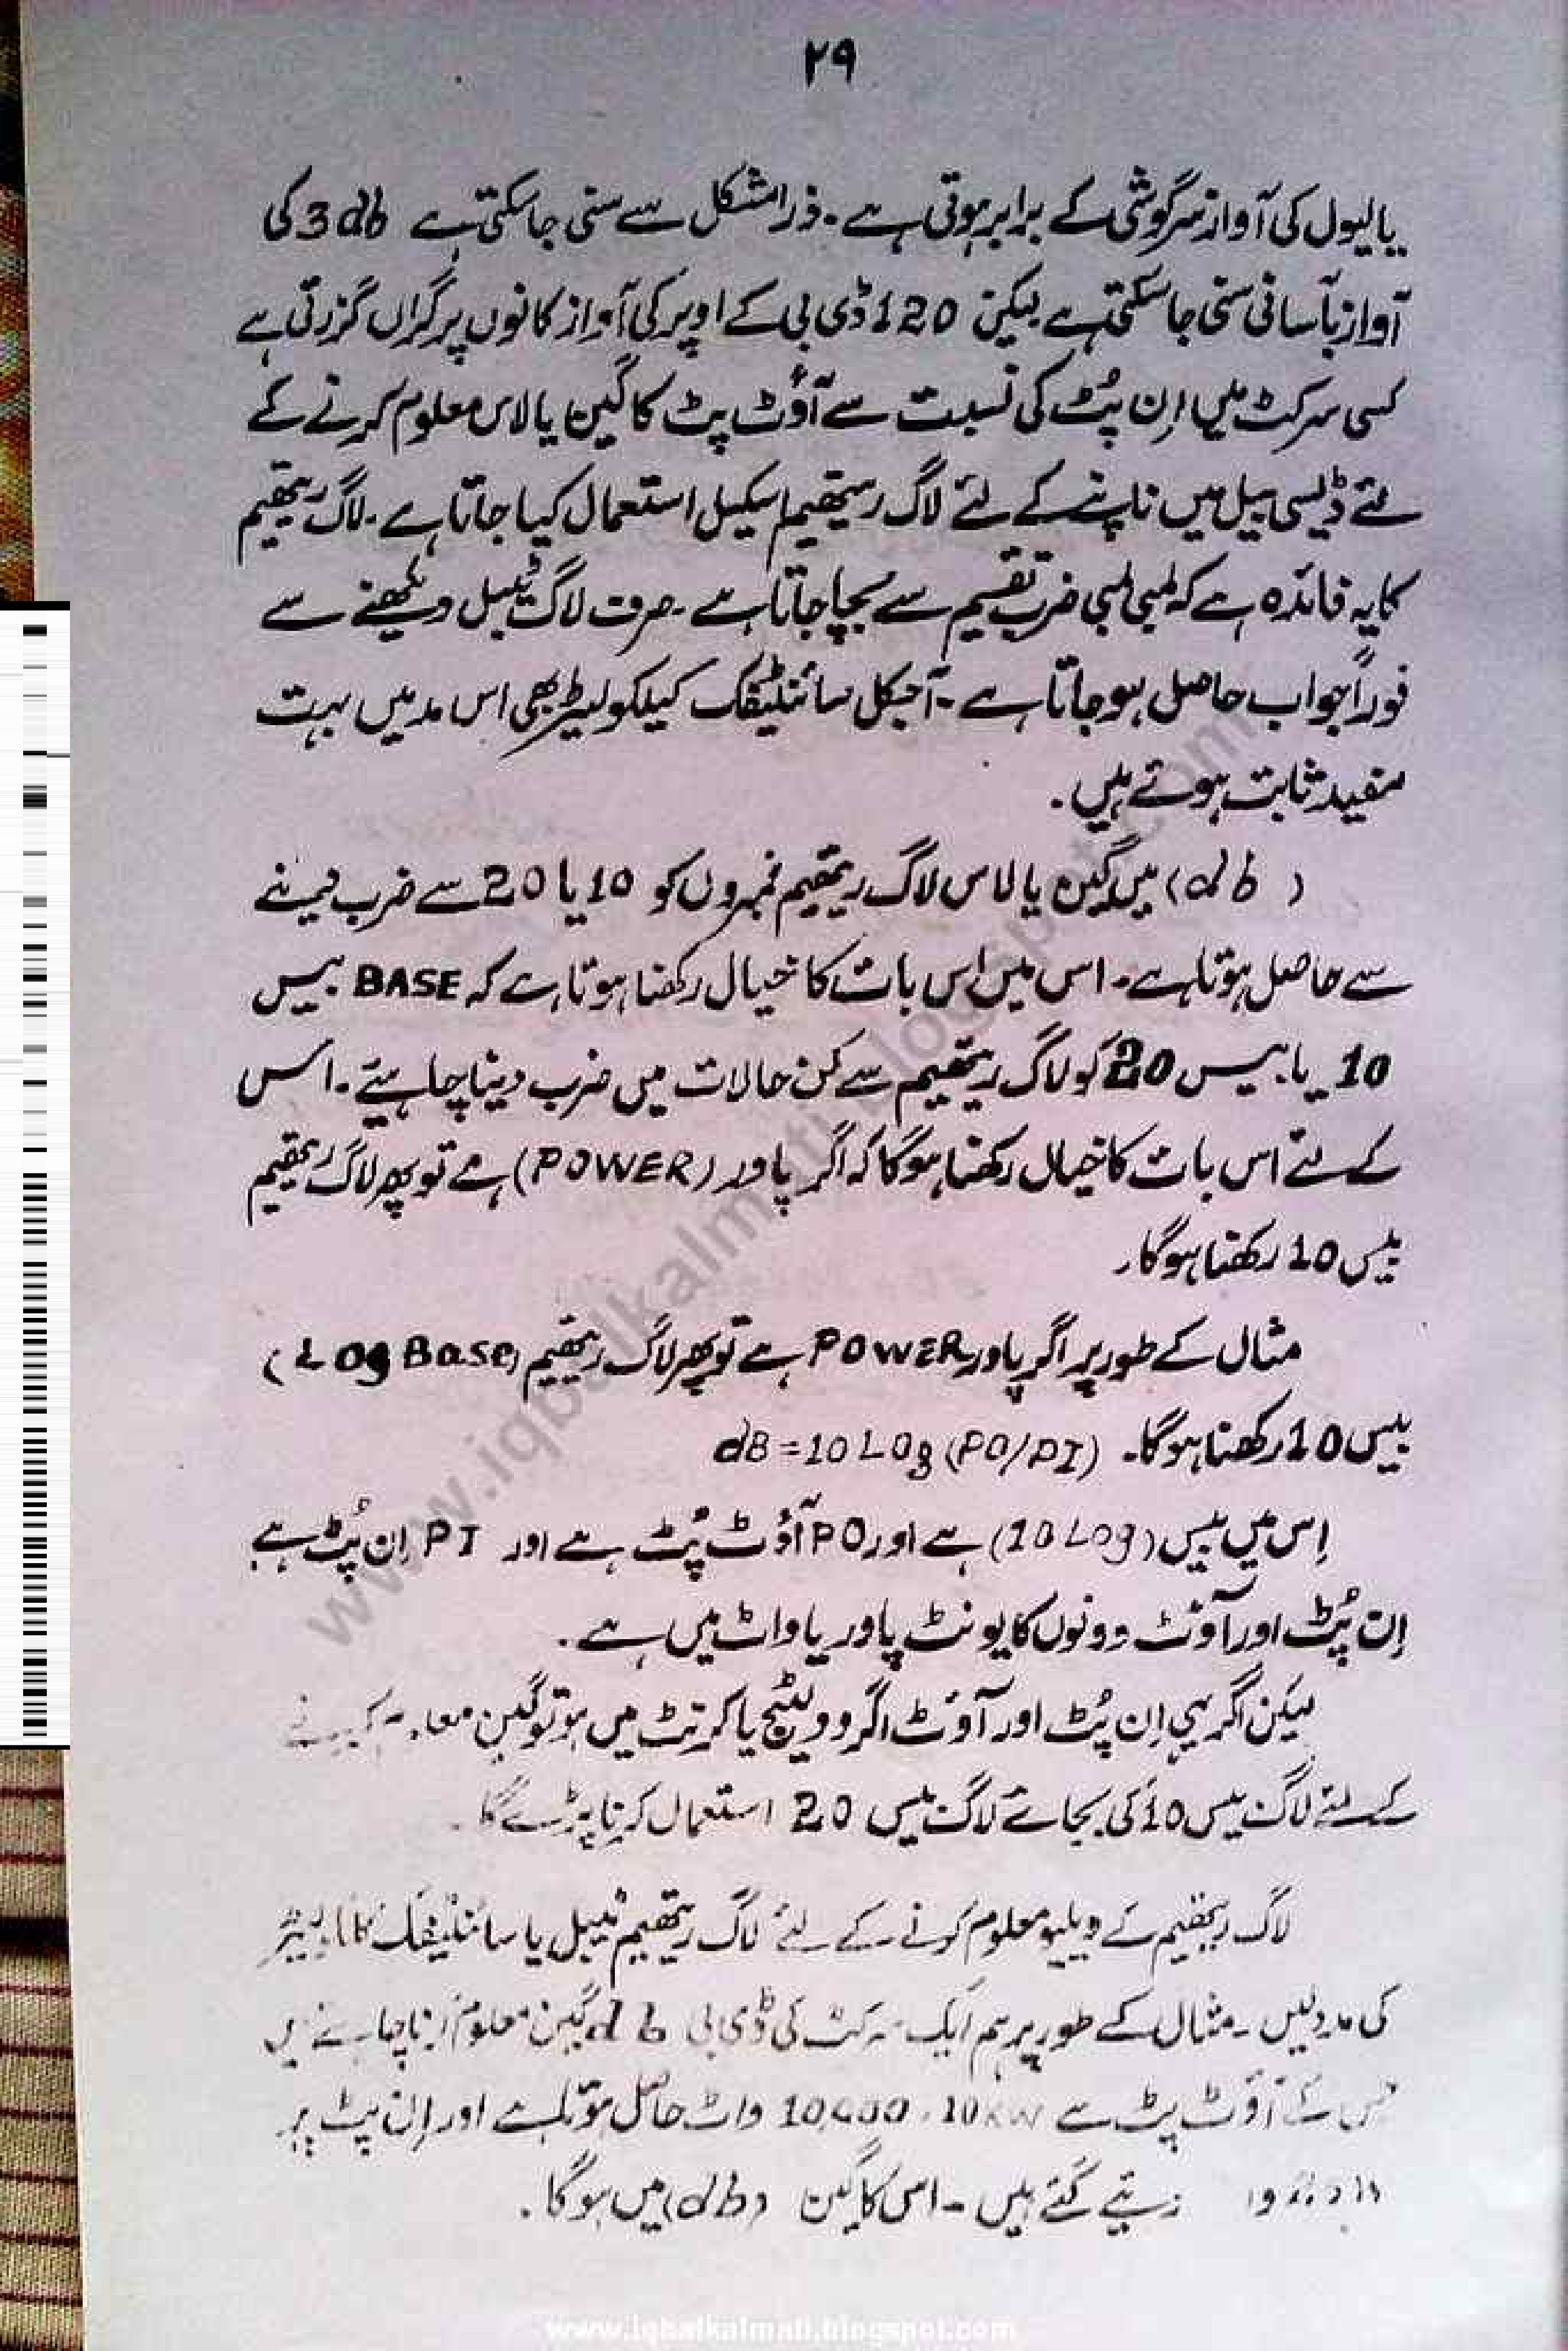 ۲۹
یا لیول کی آواز سرگوشی کے برابر ہوتی ہے۔ ذرا مشکل سے سنی جا سکتی ہے 3db کی
آواز بآسانی سنی جا سکتی ہے لیکن 120 ڈی بی کے اوپر کی آواز کانوں پر گراں گزرتی ہے
کسی سرکٹ میں اِن پُٹ کی نسبت سے آؤٹ پٹ کا گین یا لاس معلوم کرنے کے
لئے ڈیسی بیل میں ناپنے کے لئے لاگ ریتھیم اسکیل استعمال کیا جاتا ہے۔ لاگ ریتھیم
کا یہ فائدہ ہے کہ لمبی لمبی ضرب تقسیم سے بچا جاتا ہے۔ صرف لاگ ٹیبل دیکھنے سے
فوراً جواب حاصل ہو جاتا ہے۔ آجکل سائنٹیفک کیلکولیٹر بھی اس مد میں بہت
مفید ثابت ہوتے ہیں۔
(db) میں گین یا لاس لاگ ریتھیم نمبروں کو 10 یا 20 سے ضرب دینے
سے حاصل ہوتا ہے۔ اس میں اس بات کا خیال رکھنا ہوتا ہے کہ BASE بیس
10 یا بیس 20 کو لاگ ریتھیم سے کن حالات میں ضرب دینا چاہیئے۔ اس
کے لئے اس بات کا خیال رکھنا ہوگا کہ اگر پاور (POWER) ہے تو پھر لاگ ریتھیم
بیس 10 رکھنا ہوگا۔
مثال کے طور پر اگر پاور POWER ہے تو پھر لاگ ریتھیم (Log Base)
بیس 10 رکھنا ہوگا۔ dB = 10 LOg (PO/PI)
اِس میں بیس (10 Log) ہے اور PO آؤٹ پُٹ ہے اور PI اِن پُٹ ہے
اِن پُٹ اور آؤٹ دونوں کا یونٹ پاور یا واٹ میں ہے۔
لیکن اگر یہی اِن پُٹ اور آؤٹ اگر وولٹیج یا کرنٹ میں ہو تو گین
کے لئے لاگ بیس 10 کی بجائے لاگ بیس 20 استعمال کرنا پڑے گا۔
لاگ ریتھیم کے ویلیو معلوم کرنے کے لئے لاگ ریتھیم ٹیبل یا سائنٹیفک
کی مدد لیں۔ مثال کے طور پر ہم ایک سرکٹ کی ڈی بی db گین معلوم
آؤٹ پٹ سے 10KW، 10,000 واٹ حاصل ہوتا ہے اور اِن پٹ پر
گئے ہیں۔ اس کا گین (db) میں ہوگا۔
www.iqbalkalmati.blogspot.com
www.iqbalkalmati.blogspot.com